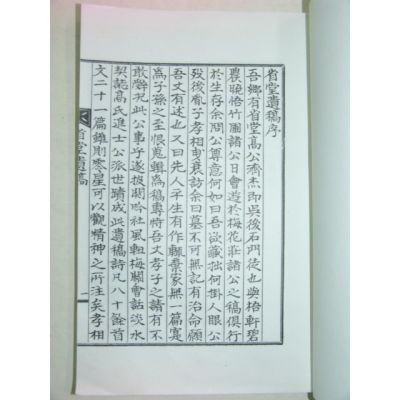 省堂遺稿序
吾鄉有省堂高公濟杰即吳後石門徒也與梧軒碧
農晚悟竹圃諸公日會遊於梅花莊諸公之稿俱行
於生存余問公尊意何如曰吾欲藏拙何掛人眼公
歿後胤子孝相曳衰訪余曰墓不可無記有治命願
吾文有述也又曰先人平生有作輒棄家無一篇寔
爲子孫之至恨蒐輯爲稿專恃吾丈孝子之請有不
敢辭兄此公事乎遂披閱吟社風軺梅關會話淡水
契誌高氏進士公派世蹟成此遺稿詩凡八十餘首
文二十一篇雖則零星可以觀精神之所注矣孝相
省堂遺稿
一